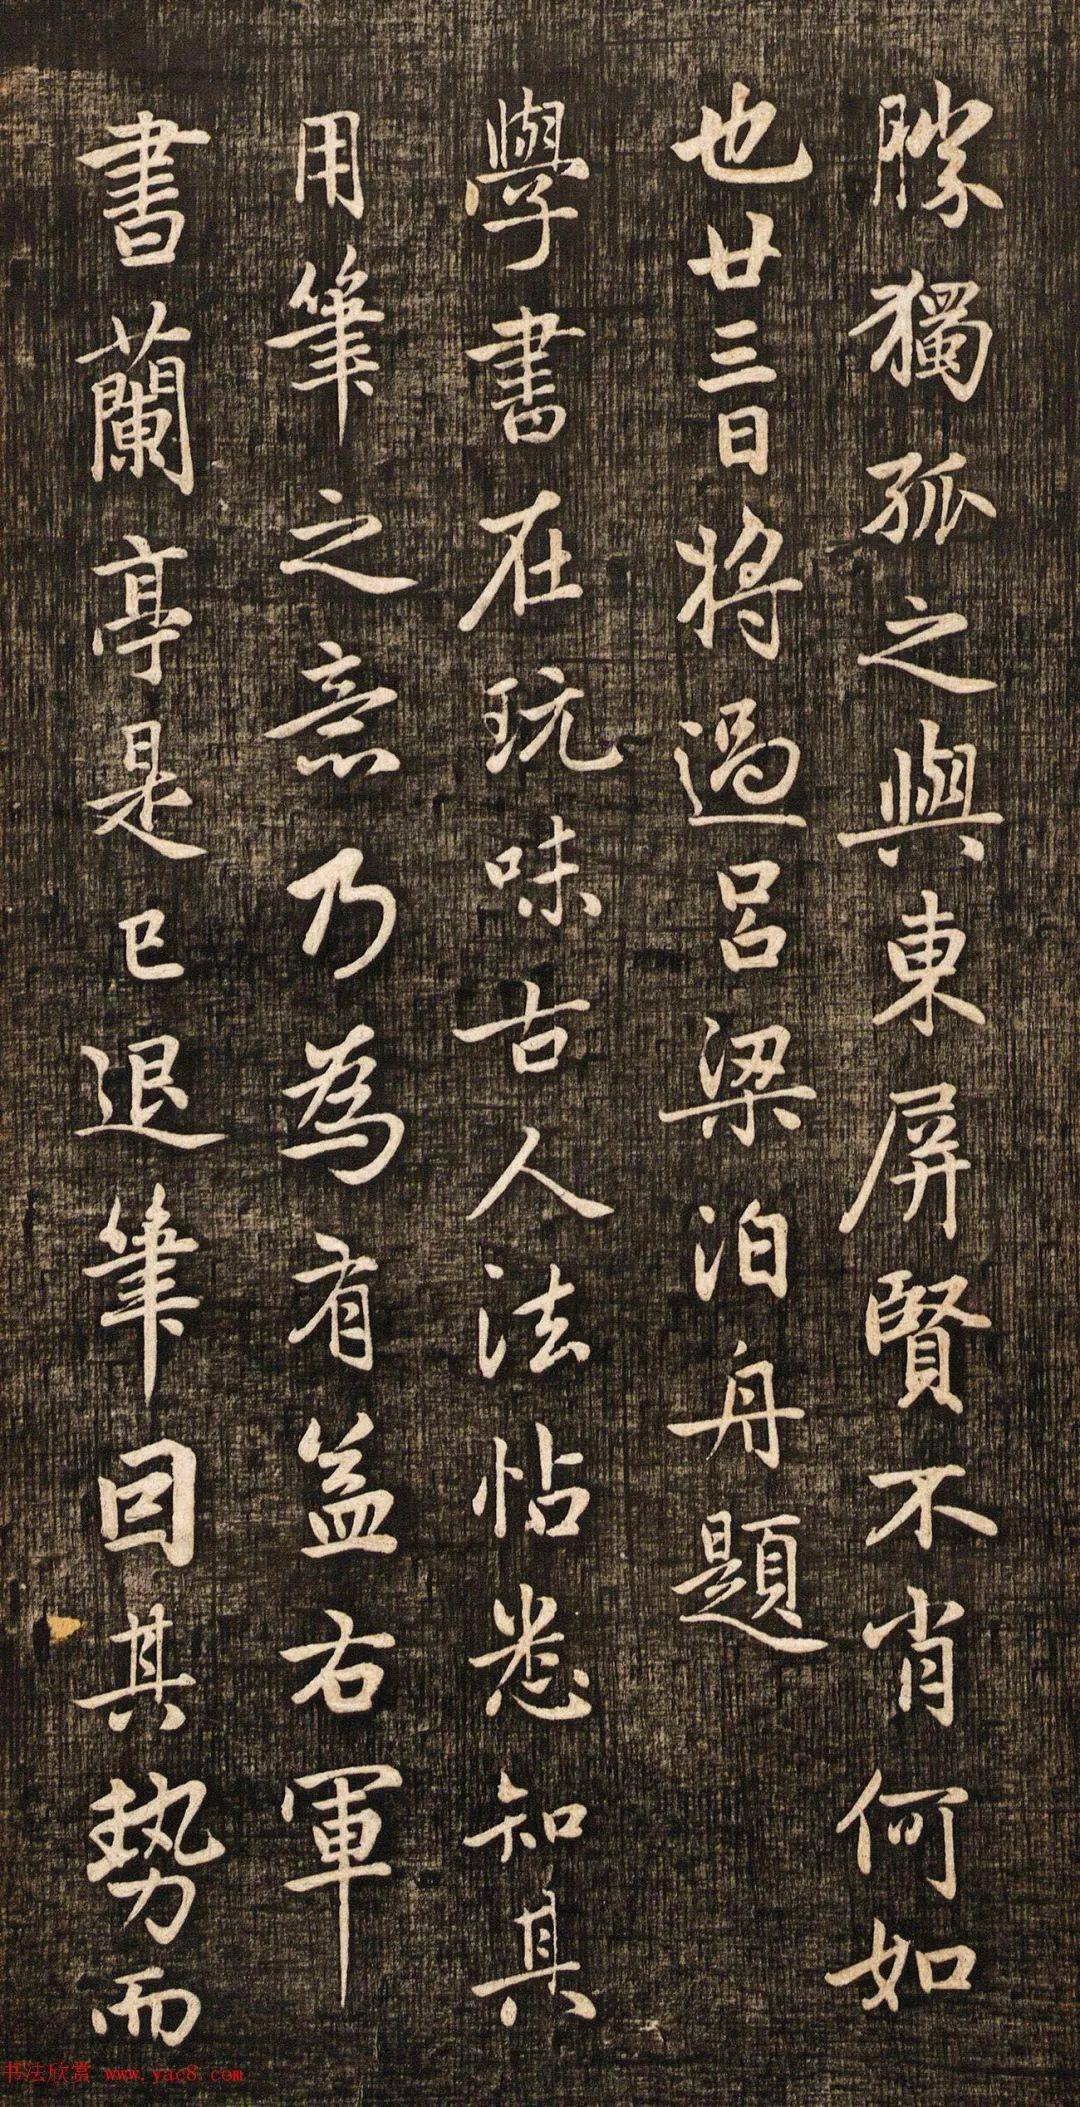 勝獨孤之與東屏賢不肖何如
也廿三日將過呂梁泊舟題
學書在玩味古人法帖悉知其
用筆之意乃為有益右軍
書蘭亭是已退筆因其勢而
书法欣赏 www.yac8.com